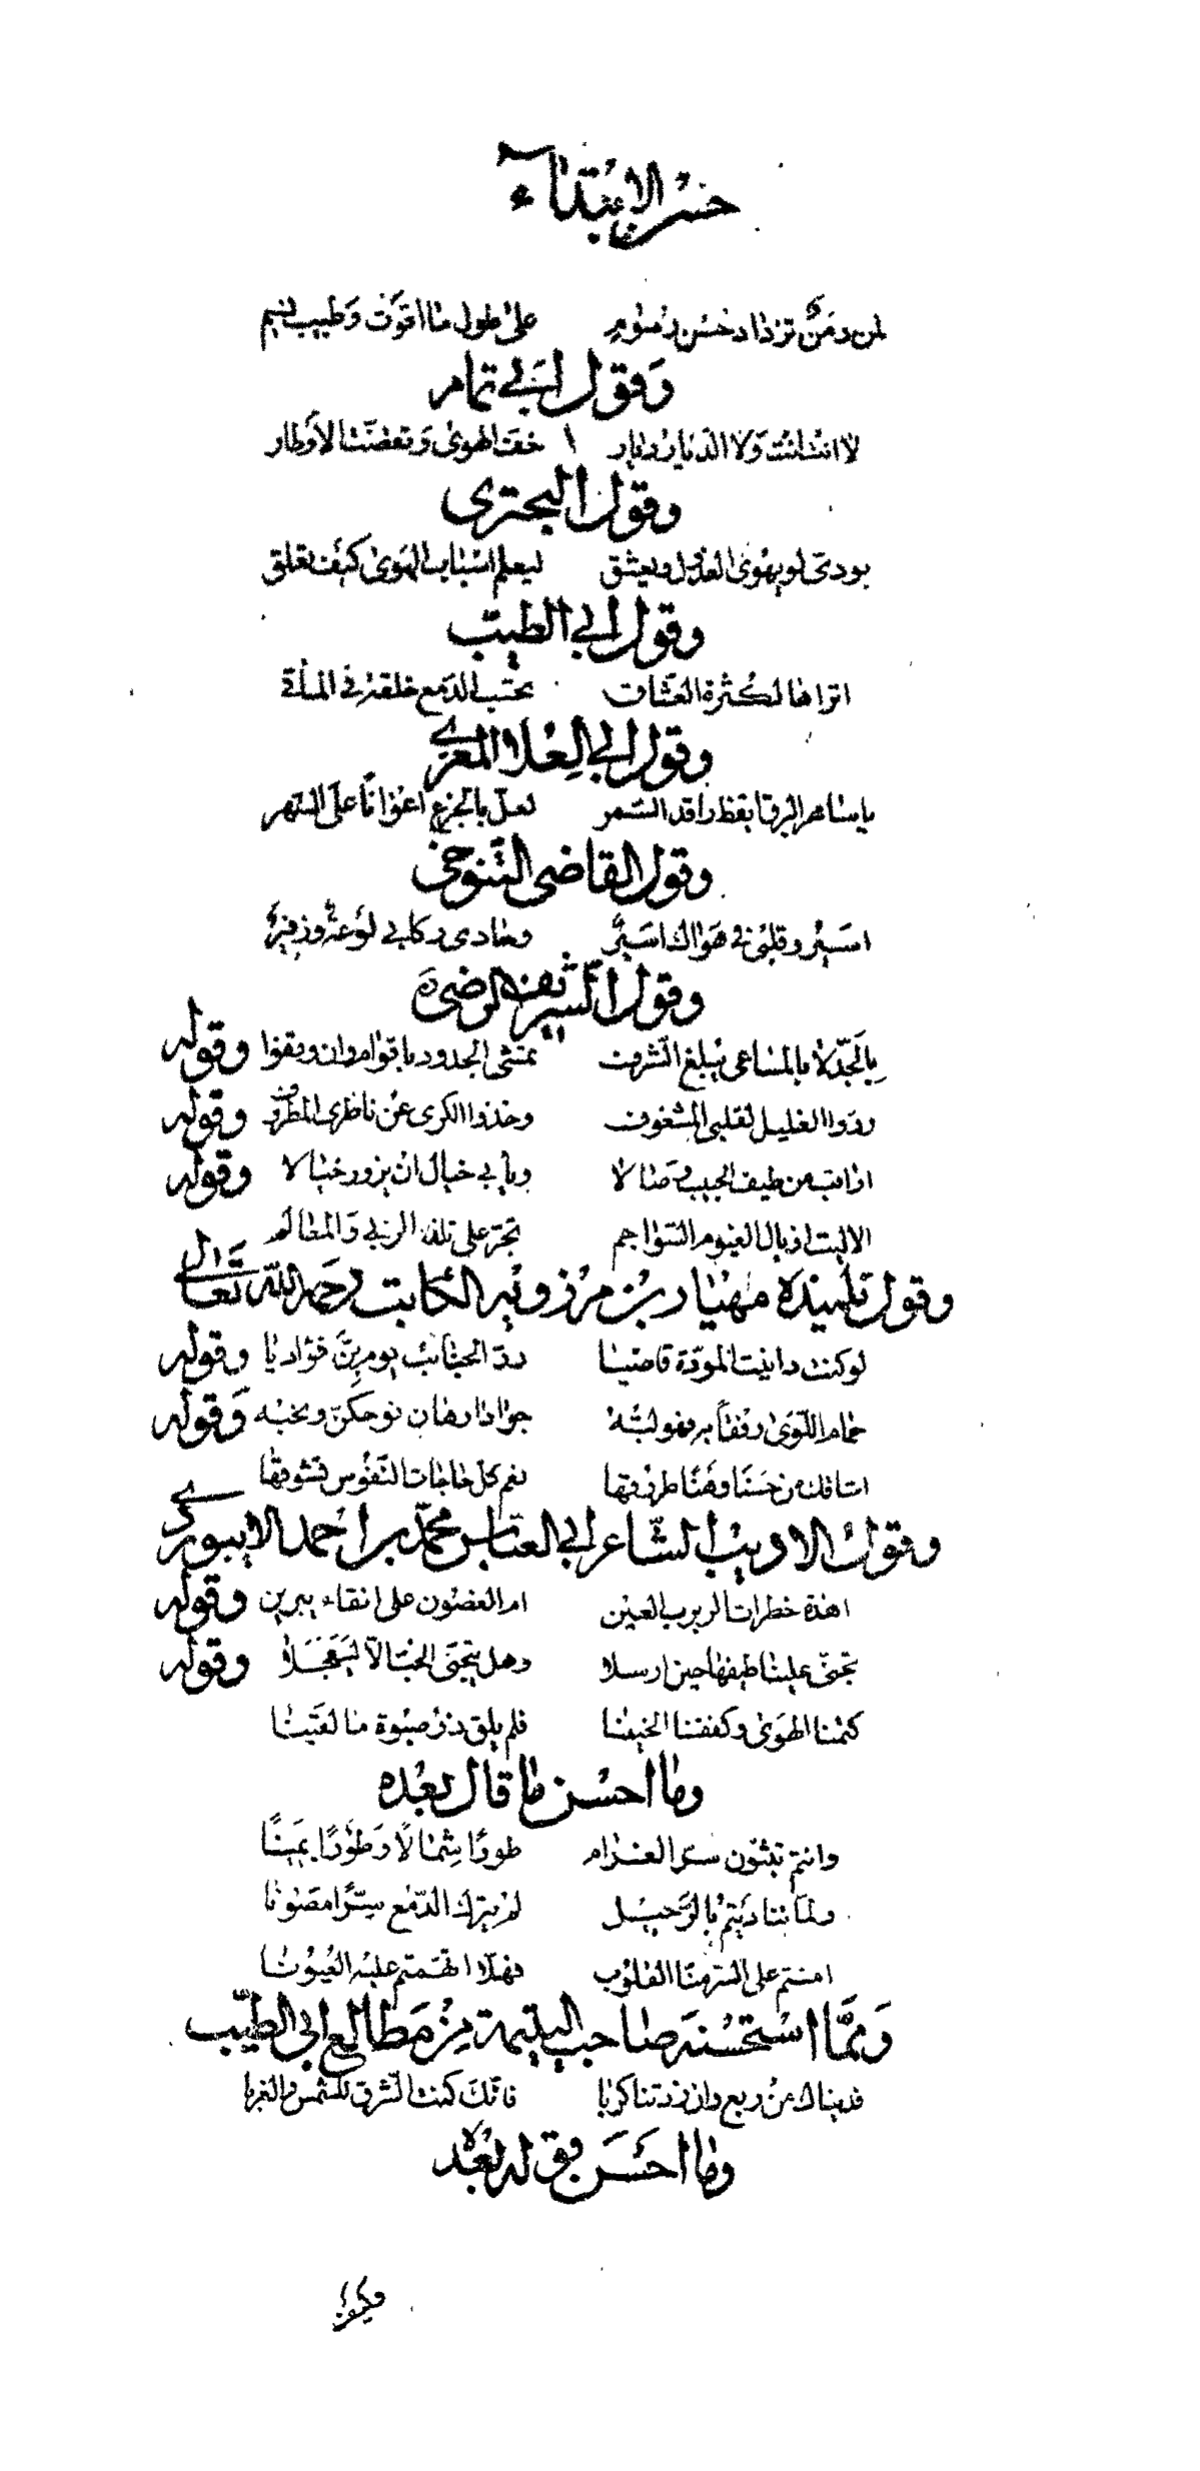 حسن الابتداء
لمن دمن تزداد حسن رسوم على طول ما اقوت وطيب نسيم
وقول ابي تمام
لا انت انت ولا الديار ديار خف الهوى وتقضت الاوطار
وقول البحترى
بودى لو يهوى العذول ويعشق ليعلم اسباب الهوى كيف تعلق
وقول ابي الطيب
اتراها لكثرة العشاق تحسب الدمع خلقة في المآقي
وقول ابي العلا المعري
يا ساهر البرق ايقظ راقد السمر لعل بالجزع اعوانا على السهر
وقول القاضى التنوخى
اسير وقلبى في هواك اسير وحادى ركابي لوعة وزفير
وقول الشريف الرضى
بالجد لا بالمساعى يبلغ الشرف تمشى الجدود باقوام وان وقفوا وقوله
ردوا الغليل لقلبى المشغوف وخذوا الكرى عن ناظرى المطروف وقوله
اراقب من طيف الحبيب وصالا ويابي خيال ان يزور خيالا وقوله
الا ليت اذيال الغيوم السواجم تجر على تلك الربي والمعالم
وقول تلميذه مهيار بن مرزويه الكاتب رحمه الله تعالى
لو كنت دانيت المودة قاصيا رد الحبائب يوم بن فؤاديا وقوله
حمام اللوى رفقا به فهو لبه جوادا رهان نوحكن ونحبه وقوله
اشاقك من حسناء وهنا طروقها نعم كل حاجات النفوس تشوقها
وقول الاديب الشاعر ابي العباس محمد بن احمد الابيوردي
اهذة خطرات الربرب العين ام الغصون على انقاء يبرين وقوله
تجنى علينا طيفها حين ارسلا وهل يتجنى الحب الا ليبخلا وقوله
كتمنا الهوى وكففنا الحنينا فلم يلق ذو صبوة ما لقينا
وما احسن ما قال بعده
وانتم تبثون سر الغرام طورا شمالا وطورا يمينا
ولما تناديتم بالرحيل لم يترك الدمع سرا مصونا
امنتم على السر منا القلوب فهلا اتهمتم عليه العيونا
ومما استحسنه صاحب اليتيمة من مطالع ابي الطيب
فديناك من ربع وان زدتنا كربا فانك كنت الشرق للشمس والغربا
وما احسن قوله بعده